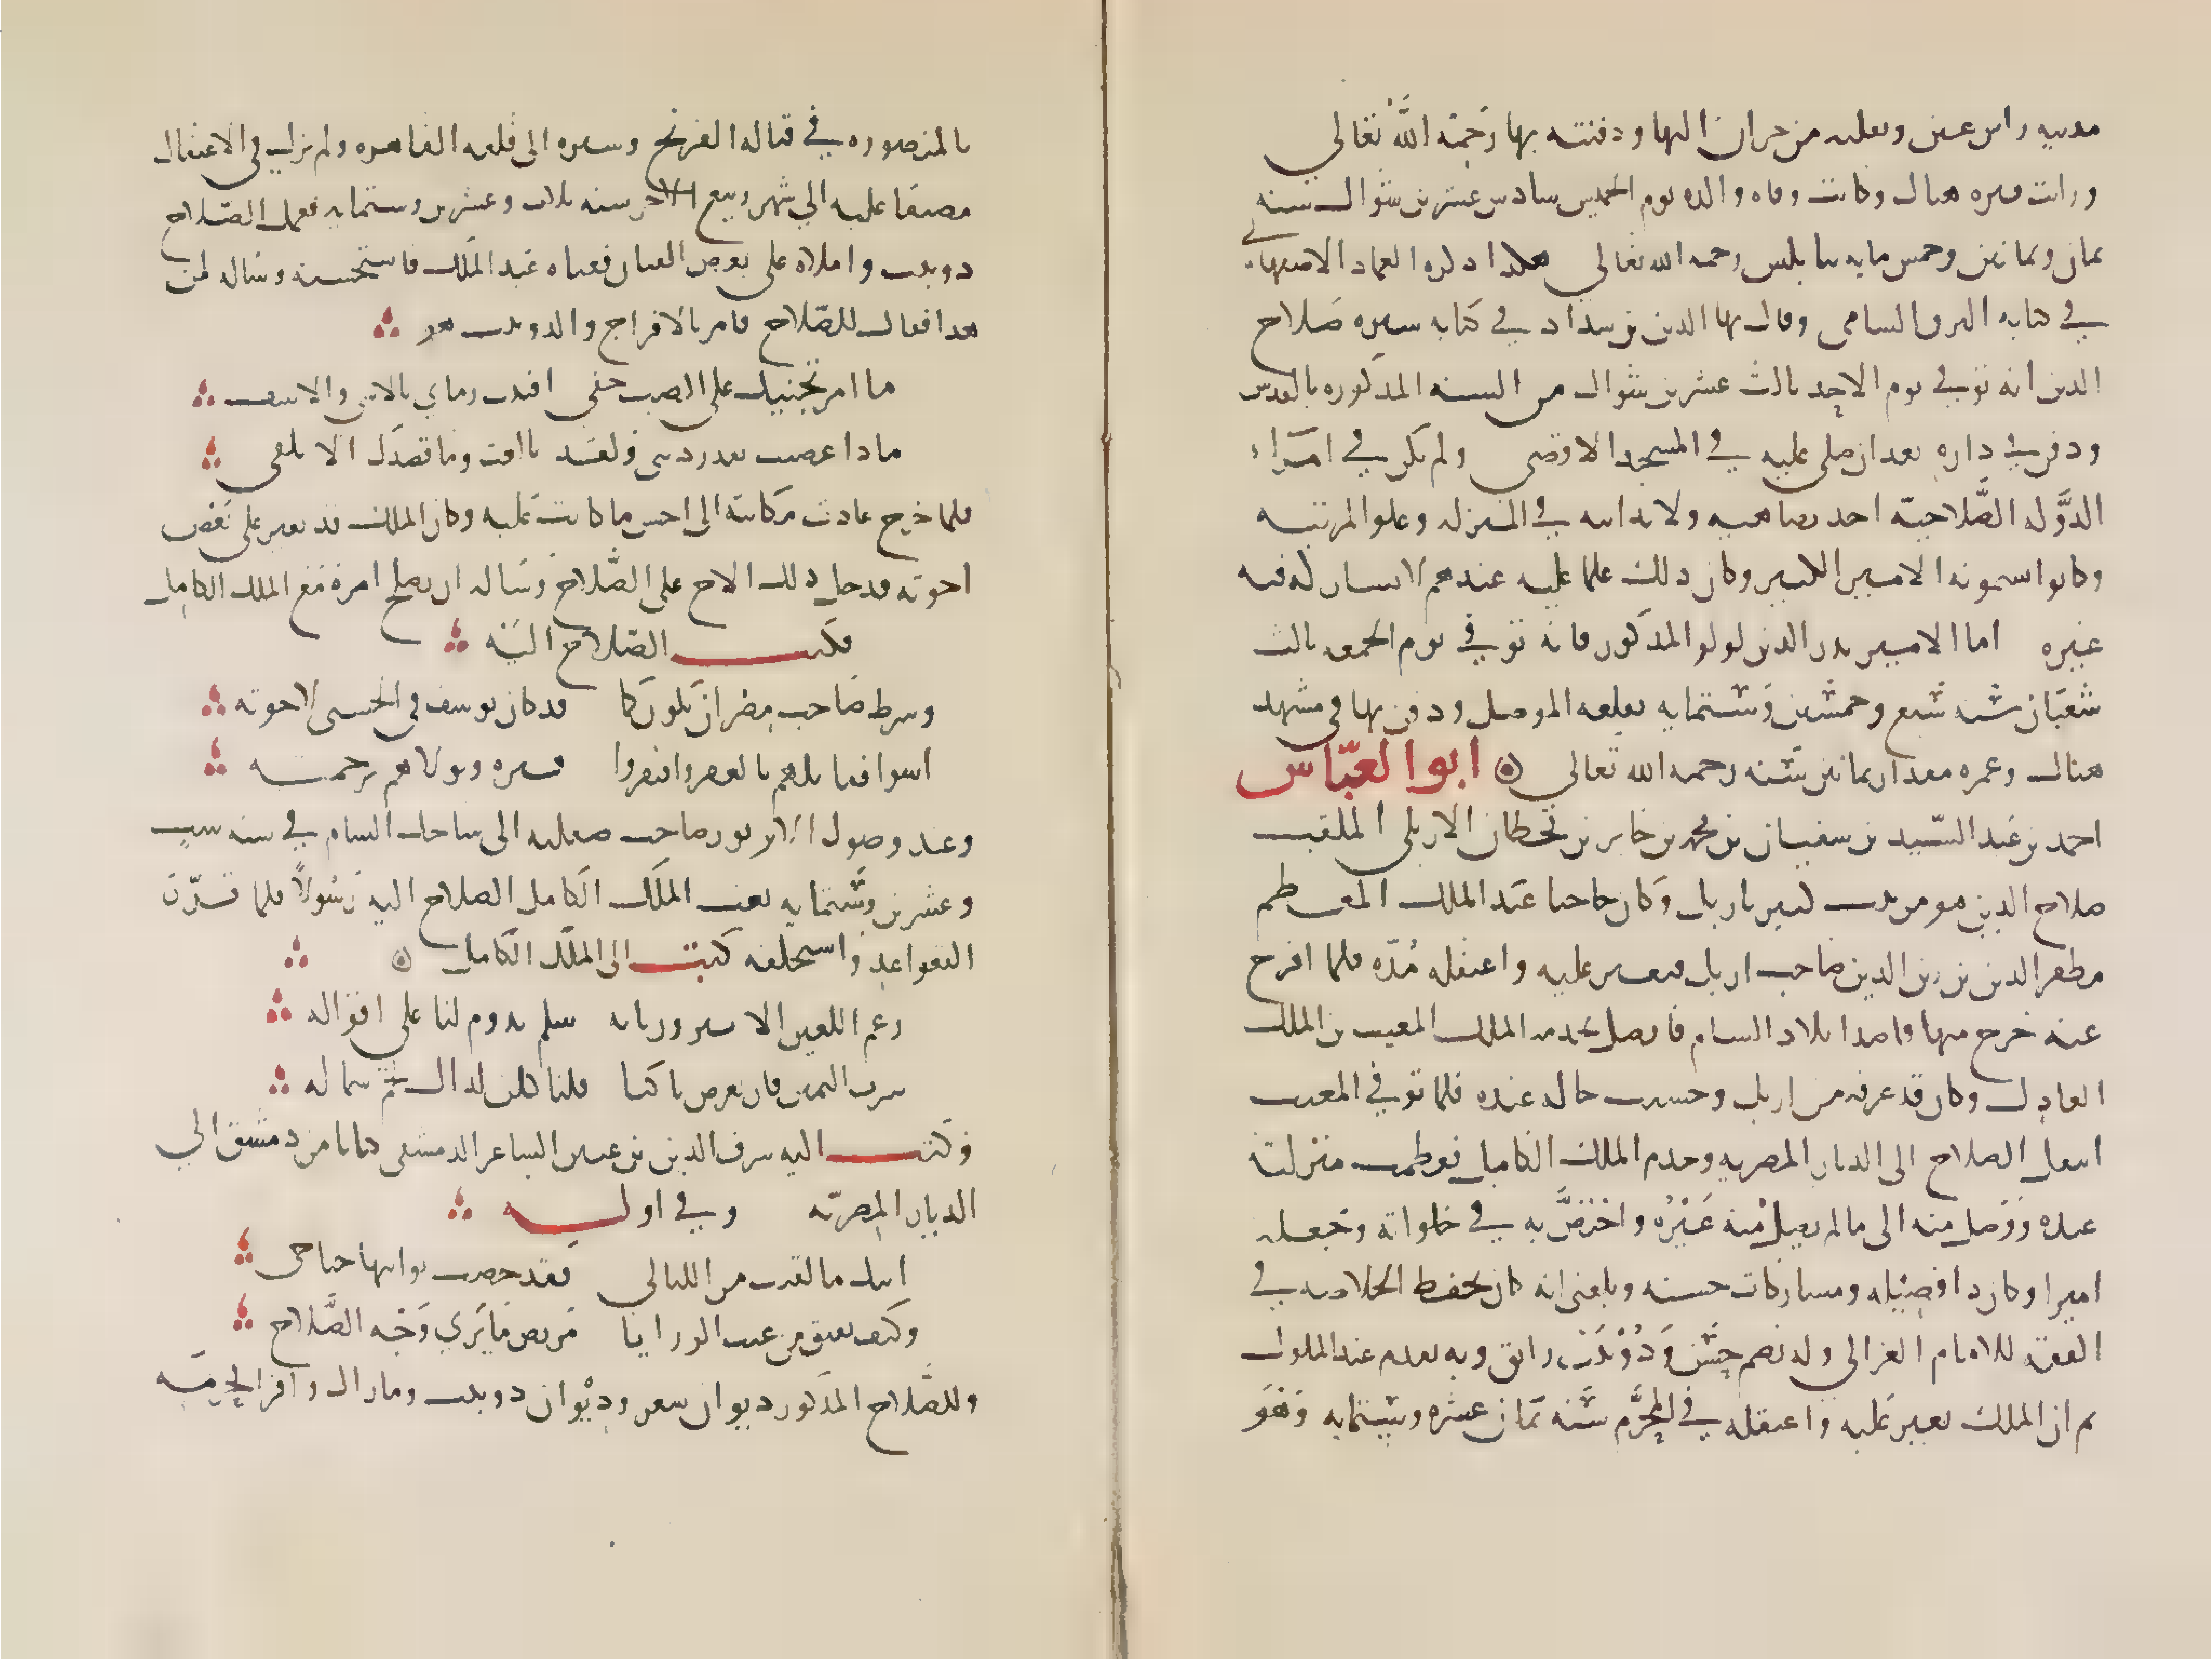 مدينة راس عين ونقلته من حران اليها ودفنته بها رَحِمَهُ اللَّهُ تعَالي
ورايت قبره هناك وكانت وفاه والده يوم الخميس سادس عشرين شوال سنه
ثمان وثمانين وخمس مايه بنابلس رحمه الله تعالي هكذا ذكره العماد الاصبهاني
في كتابه البرق الشامي وقال بها الدين بن شداد في كتابه سيره صَلاح
الدين انه توفي يوم الاحد ثالث عشرين شوال من السنه المذكوره بالقدس
ودفن في داره بعد ان صلي عليه في المسجد الاقصي ولم يكن في امَرَاء
الدَّوله الصَّلاحيّه احد يضاهيه ولا يدانيه في المنزله وعلو المرتبه
وكانوا يسمونه الامير الكبير وكان ذلك علما عليه عندهم لا يشاركه فيه
غيره اما الامير بدر الدين لولو المذكور فانه توفي يوم الجمعه ثالث
شعبَان سنه سَبع وخمسين وَستمايه بقلعه الموصل ودفن بها في مشهد
هناك وعمره مقدار ثمانين سَنه رحمه الله تعالي ابو العبّاس
احمد بن عَبد السّيد بن سفيان بن محمد بن جابر بن قحطان الاربلي الملقب
صلاح الدين هو من بيت كبير باربل وَكان حاجبا عَند الملك المعظم
مظفر الدين بن زين الدين صاحب اربل فتغير عليه واعتقله مُدّه فلما افرج
عنه خرج منها قاصدا بلاد الشام فاتصل بخدمه الملك المغيث بن الملك
العادل وكان قد عرفه من اربل وحسنت حاله عنده فلما توفي المغيث
انتقل الصلاح الي الديار المصريه وخدم الملك الكامل فعظمت منزلته
عنده وَوَصل منه الي ما لم يصل مُنه غَيْرُه واخْتَصَّ به في خلواته وجَعله
اميرا وكان ذا فضيله ومشاركات حسنه وبلغني انه كان يحفظ الخلاصه في
الفقه للامام الغزالي وله نظم حسَن وَدُوبَيْت رايق وبه تقدم عند الملوك
ثم ان الملك تغير عَليه واعتقله في المحَرَّم سَنه ثمَان عشره وستمايه وَهوَ
بالمنصوره في قتاله الفرنج وسيره الي قلعه القاهره ولم يزل في الاعتقال
مضيقا عليه الي شهر ربيع الاخر سنه ثلاث وعشرين وستمايه فعمل الصّلاح
دوبيت واملاه علي بعض القيان فغناه عَند الملك فاستحسنه وساله لمن
هذا فقال للصّلاح فامر بالافراج والدوبيت هو
ما امر تجنيك علي الصب خفي افنيت زماني بالاسي والاسف
ماذا غضب بقدر ذنبي ولقد بالغت وما قصدَك الا تلفي
فلما خرج عادت مَكانته الي احسن ما كانت عَليه وكان الملك قد تغير علي بَعض
اخوته فدخل ذلك الاخ علي الصَّلاح وسَاله ان يصلح امره مَع الملك الكامل
فكتب الصّلاح اليَه
وشرط صَاحب مِصر ان يكون كما قد كان يوسف في الحسني لاخوته
اسوا فقابلهم بالعفو وافتقروا فبره وتولاهم برحمته
وعند وصول الانبرور صاحب صقليه الي ساحل الشام في سنه ست
وعشرين وسَّتمايه بعث الملَك الكامل الصلاح اليه رَسُولاً فلما قَرّرَ
القواعد واستحلفه كتب الي الملك الكامل
زعم اللعين الانبرور بانه سلم يدوم لنا علي اقواله
شرب اليمين فان تعرض ناكثا فلناكلن لذاك لحم شماله
وَكتب اليه شرف الدين بن عنين الشاعر الدمشقي كتابا من دمشق الي
الديار المِصريّه وفي اوله
ابثك ما لقيت من الليالي فقد حصت نوايبها جناحي
وكيف يفيق من عنت الرزايا مَريض مَا يَري وَجْه الصَّلاح
وللصَّلاح المذكور ديوان شعر وديْوان دوبيت وما زال وافر الحرمَه